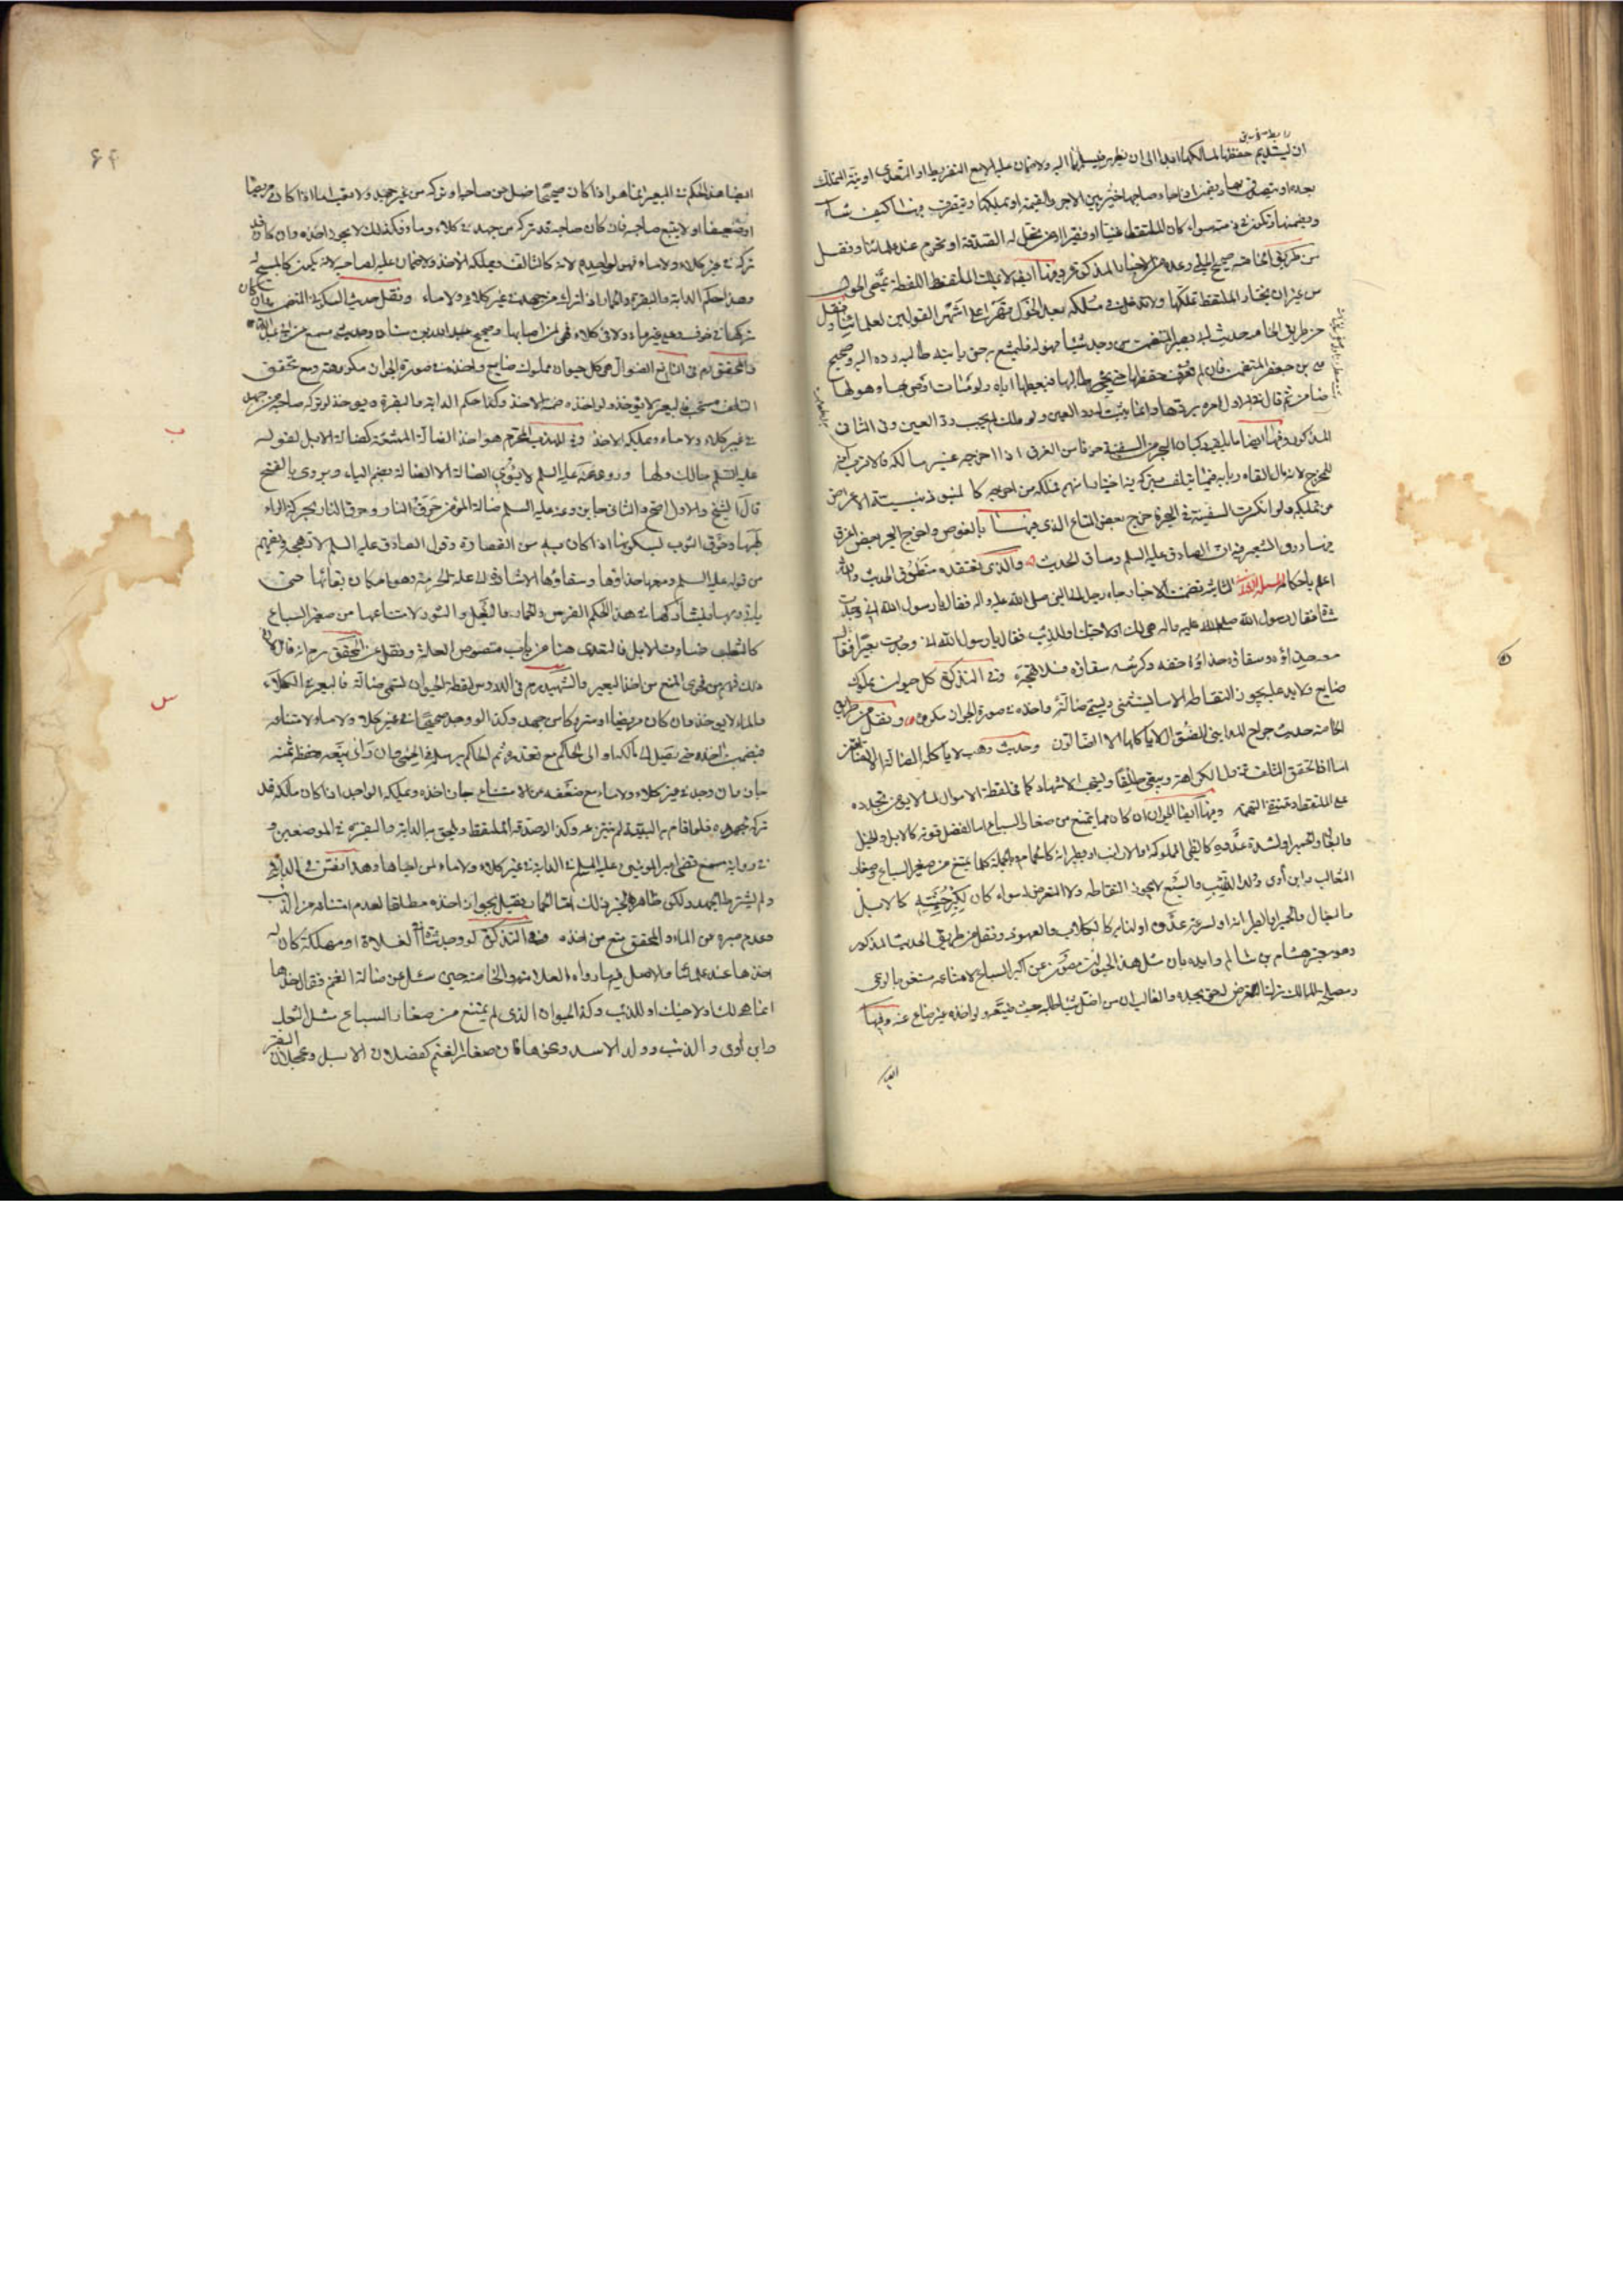 ان يستديم حفظها لمالكها ابدا الى ان يظهر فيسلمها اليه ولا ضمان عليه الا مع التفريط او التعدي او نية التملك
بعده او يتصدق بها ويضمن اذا جاء صاحبها خيّر بين الاجر والقيمة او تملكها ويتصرف فيها كيف شاء
ويضمنها وتكون في ذمته سواء كان الملتقط غنيا او فقيرا او من تحل له الصدقة او تحرم عند علمائنا ونقل
من طريق الخامسة صحيح الحلبي وعدة من الاخبار المذكورة وفيها ايضا لا يملك الملتقط اللقطة بمضي الحول
من غير ان يختار الملتقط تملكها ولا تدخل في ملكه بعد الحول قهرا على اشهر القولين لعلمائنا ونقل
من طريق الخامسة حديث ابي بصير المتضمن من وجد شيئا فهو له فليتمتع به حتى ياتيه طالبه رده اليه وصحيح
علي بن جعفر المتضمن فان لم تعرف حفظها حتى يجئ طالبها فيعطيها اياه ولو مات اوصى بها وهو لها
ضامن ثم قال
المذكورة وفيها ايضا ما يلقيه ركبان البحر من السفينة خوفا من الغرق اذا اخرجه غير مالكه فالاقرب انه
للمخرج لانه مال القاه اربابه فيما يتلف بتركه فيه اختيارا منهم فملكه من اخرجه كالمنبوذ بنية الاعراض
من تملكه ولو انكسرت السفينة في البحر فاخرج بعض المتاع الذي فيها بالغوص واخرج البحر بعض ما غرق
فيها روى الشعيري ان الصادق عليه السلم وساق الحديث والذي نعتقده منطوق الحديث والله
اعلم باحكامه المسئلة الثانية تضمنت الاخبار جاء رجل الى النبي صلى الله عليه واله فقال يا رسول الله اني وجدت
شاة فقال رسول الله صلى الله عليه واله هي لك او لاخيك او للذئب فقال يا رسول الله اني وجدت بعيرا فقال
معه حذاؤه وسقاؤه حذاؤه خفه وكرشه سقاؤه فلا تهجه وفي التذكرة كل حيوان مملوك
ضايع ولا يد عليه يجوز التقاطه الا ما يستثنى ويسمى ضالة واخذه في صورة الجواز مكروه ونقل من طريق
الخامسة حديث جراح المدايني الضوال لا ياكلها الا الضالون وحديث وهب لا ياكل الضالة الا الضالون
اما اذا تحقق التلف فتزول الكراهة ويبقى طلقا ويستحب الاشهاد كما في لقطة الاموال لما لا يؤمن تجدده
على الملتقط وتنتفي التهمة وفيها ايضا الحيوان ان كان مما يمتنع من صغار السباع اما لفضل قوته كالابل والخيل
والبغال والحمير او لشدة عدوه كالظبي المملوكة والارانب او بطيرانه كالحمام وبالجملة كلما يمتنع من صغير السباع وصغار
الثعالب وابن اوى وولد الذئب والسبع لا يجوز التقاطه ولا التعرض له سواء كان لكبر جثته كالابل
والبغال والحمير او لطيرانه او لسرعة عدوه او لنابه كالكلاب والفهود ونقل من طريق الحديث المذكور
وهو خبر هشام بن سالم وايده بان مثل هذا الحيوان مصون عن اكثر السباع لامتناعه مستغن بالرعي
ومصلحة المالك ترك التعرض له حتى يجده والغالب ان من اضل شيئا طلبه حيث ضيعه ولو اخذه غيره ضاع عنه وفيها
ايضا
ايضا هذا الحكم في البعير انما هو اذا كان صحيحا اضل من صاحبه او تركه من غير جهد ولا تعب اما اذا كان مريضا
او ضعيفا او لا يتبع صاحبه فان كان صاحبه قد تركه من جهد في كلاء وماء فكذلك لا يجوز اخذه وان كان قد
تركه في غير كلاء ولا ماء فهو لواجده لانه كالتالف ويملكه الاخذ ولا ضمان عليه لصاحبه لانه يكون كالمبيح له
وهذا حكم الدابة والبقرة والحمار اذا ترك من جهد في غير كلاء ولا ماء ونقل حديث السكوني المتضمن وان كان
تركها في خوف وعلى غير ماء ولا كلاء فهي لمن احياها وصحيح عبد الله بن سنان وحديث مسمع عن ابي عبد الله
والمحقق ره في النافع الضوال هي كل حيوان مملوك ضايع واخذه في صورة الجواز مكروه ومع تحقق
التلف مستحب فالبعير لا يؤخذ ولو اخذه ضمنه الاخذ وكذا حكم الدابة والبقرة ويؤخذ لو تركه صاحبه من جهد
في غير كلاء ولا ماء ويملكه الاخذ وفي المهذب المحترم هو اخذ الضالة الممتنعة كضالة الابل لقوله
عليه السلم مالك ولها وروي عنه عليه السلم لا يؤوي الضالة الا الضالة بضم الياء ويروى بالفتح
قال الشيخ والاول اصح والثاني جايز وعنه عليه السلم ضالة المؤمن حرق النار وحرق النار بحركة الراء
لهبها وحرق الثوب بسكونها اذا كان به من القصارة وقول الصادق عليه السلم لا تهجه ويفهم
من قوله عليه السلم ومعها حذاؤها وسقاؤها الاشارة الى علة الحرمة وهو امكان بقائها حتى
ياتي ربها ويشاركها في هذا الحكم الفرس والحمار والبغل والثور لامتناعها من صغير السباع
كالثعلب فساوت الابل فالتعدي هنا من باب منصوص العلة ونقل عن المحقق ره انه قال
ذلك فهم من فحوى المنع من اخذ البعير والشهيد ره في الدروس لقطة الحيوان تسمى ضالة فالبعير في الكلاء
والماء لا يؤخذ وان كان مريضا او متروكا من جهد وكذا لو وجد صحيحا في غير كلاء ولا ماء لامتناعه
فيضمنه اخذه حتى يصل الى مالكه او الى الحاكم مع تعذره ثم الحاكم يرسله في الحمى فان راى بيعه حفظ ثمنه
جاز وان وجد في غير كلاء ولا ماء مع ضعفه عن الامتناع جاز اخذه وتملكه الواجد اذا كان مالكه قد
تركه لجهده فلو اقام به البينة لم ينتزعه وكذا لو صدقه الملتقط ويلحق به الدابة والبقرة في الموضعين و
في رواية مسمع قضى امير المؤمنين عليه السلم في الدابة في غير كلاء ولا ماء لمن احياها وهذا يفتى في الدابة
ولم يشترط الجهد ولكن ظاهر الخبر ذلك اما الحمار فقيل بجواز اخذه مطلقا لعدم امتناعه من الذئب
وعدم صبره عن الماء والمحقق منع من اخذه وفي التذكرة لو وجد شاة في الفلاة او مهلكة كان له
اخذها عند علمائنا والاصل فيه ما رواه العلامة والخاصة حين سئل عن ضالة الغنم فقال خذها
انما هي لك او لاخيك او للذئب وكذا الحيوان الذي لم يمتنع من صغار السباع مثل الثعلب
وابن اوى والذئب وولد الاسد ونحوها فان صغار الغنم كفصلان الابل وعجول البقر